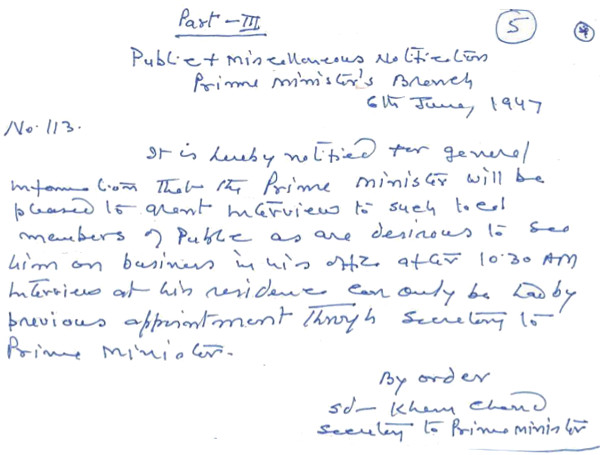 Part-III
5
Public + Miscellaneous Notification
Prime Minister's Branch
6th June, 1947
No. 113.
It is hereby notified for general
information that the Prime Minister will be
pleased to grant interviews to such local
members of Public as are desirous to see
him on business in his office after 10:30 AM
Interviews at his residence can only be had by
previous appointment through Secretary to
Prime Minister.
By order
Sd- Khem Chand
Secretary to Prime Minister